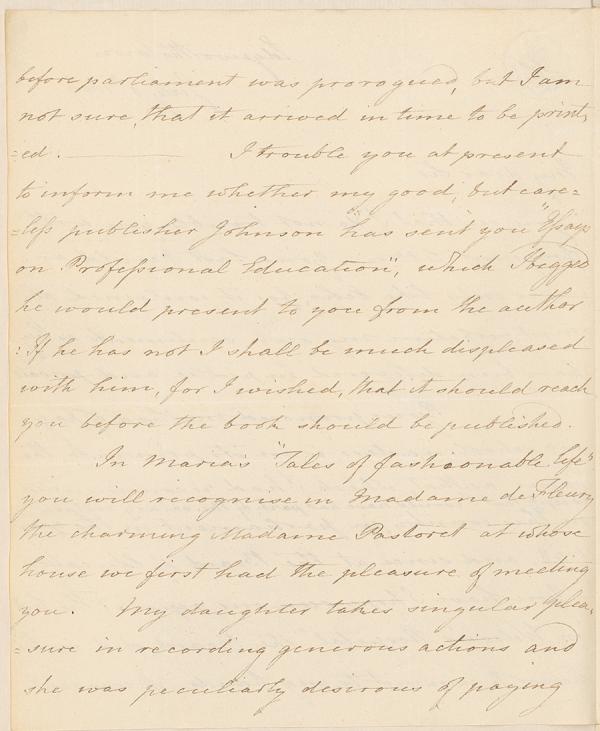 before parliament was prorogued, but I am
not sure, that it arrived in time to be print,
=ed. ———— I trouble you at present
to inform me whether my good, but care=
=less publisher Johnson has sent you "Essays
on Professional Education", which I begged
he would present to you from the author
: If he has not I shall be much displeased
with him, for I wished, that it should reach
you before the book should be published.
In Maria's "Tales of fashionable life"
you will recognise in Madame de Fleury
the charming Madame Pastoret at whose
house we first had the pleasure of meeting
you. My daughter takes singular plea=
=sure in recording generous actions and
she was peculiarly desirous of paying